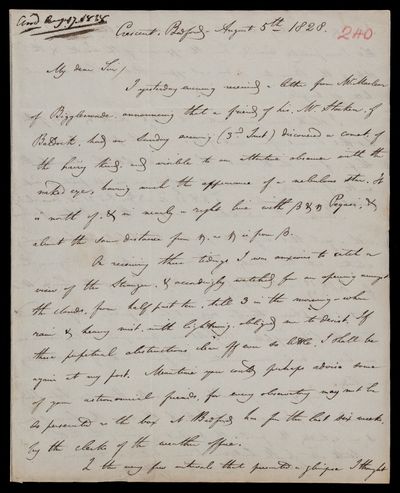 And Aug 7. 1828
Crescent, Bedford - August 5th 1828.
240
My dear Sir,
I yesterday evening received a letter from Mr. Maclear
of Biggleswade, announcing that a friend of his, Mr. of
Baldock, had on Sunday evening (3rd Inst) discovered a comet, of
the hairy kind, and visible to an attentive observer with the
naked eye, having much the appearance of a nebulous star. It
is north of, & in nearly a right line with β & η Pegasi, &
about the same distance from η, as η is from β.
On receiving these tidings I was anxious to catch a
view of the Stranger, & accordingly watched for an opening amongst
the clouds, from half past ten, till 3 in the morning - when
rain & heavy mist, with lightning, obliged me to desist. If
these perpetual obstructions clear off ever so little, I shall be
again at my post. Meantime you could perhaps advise some
of your astronomical friends, for every observatory may not be
so persecuted as the box at Bedford has for the last six weeks,
by the clerks of the weather office.
In the very few intervals that presented a glimpse I thought